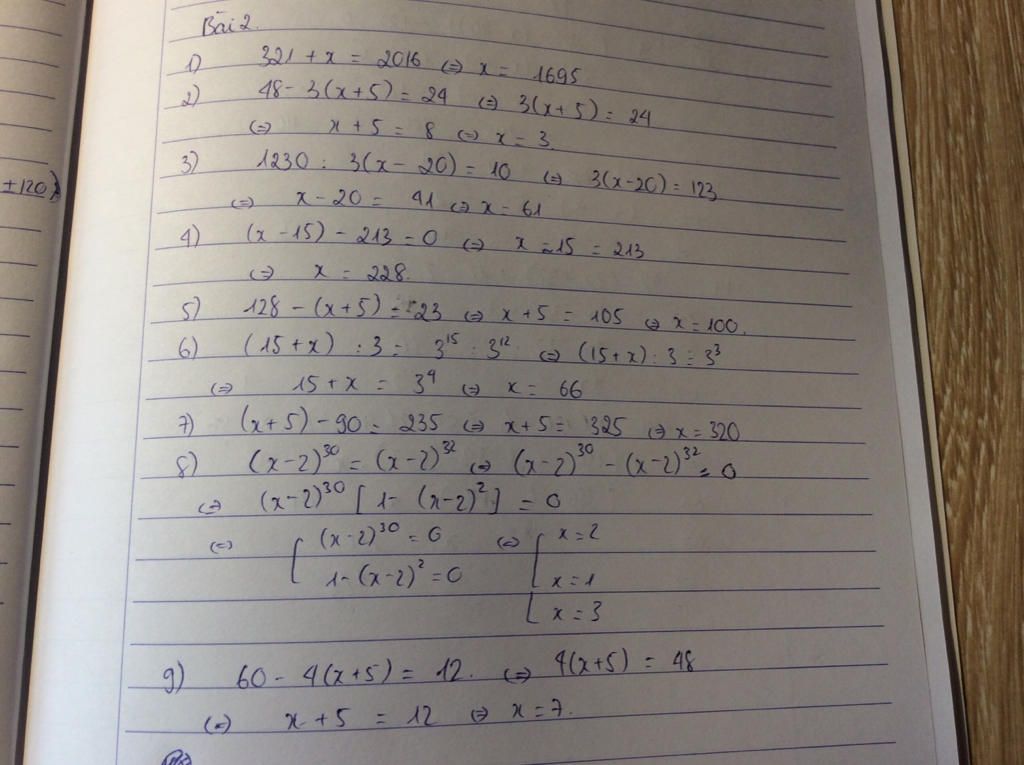 ±120)
Bài 2.
1) 321 + x = 2016 <=> x = 1695
2) 48 - 3(x+5) = 24 <=> 3(x+5) = 24
<=> x + 5 = 8 <=> x = 3
3) 1230 : 3(x - 20) = 10 <=> 3(x-20) = 123
<=> x - 20 = 41 <=> x = 61
4) (x - 15) - 213 = 0 <=> x - 15 = 213
<=> x = 228.
5) 128 - (x+5) = 23 <=> x + 5 = 105 <=> x = 100.
6) (15+x) : 3 = 3^15 : 3^12 <=> (15+x) : 3 = 3^3
<=> 15 + x = 3^4 <=> x = 66
7) (x+5) - 90 = 235 <=> x+5 = 325 <=> x = 320
8) (x-2)^30 = (x-2)^32 <=> (x-2)^30 - (x-2)^32 = 0
<=> (x-2)^30 [1 - (x-2)^2] = 0
<=> [ (x-2)^30 = 0 <=> [ x = 2
1 - (x-2)^2 = 0 x = 1
[ x = 3
9) 60 - 4(x+5) = 12. <=> 4(x+5) = 48
<=> x + 5 = 12 <=> x = 7.